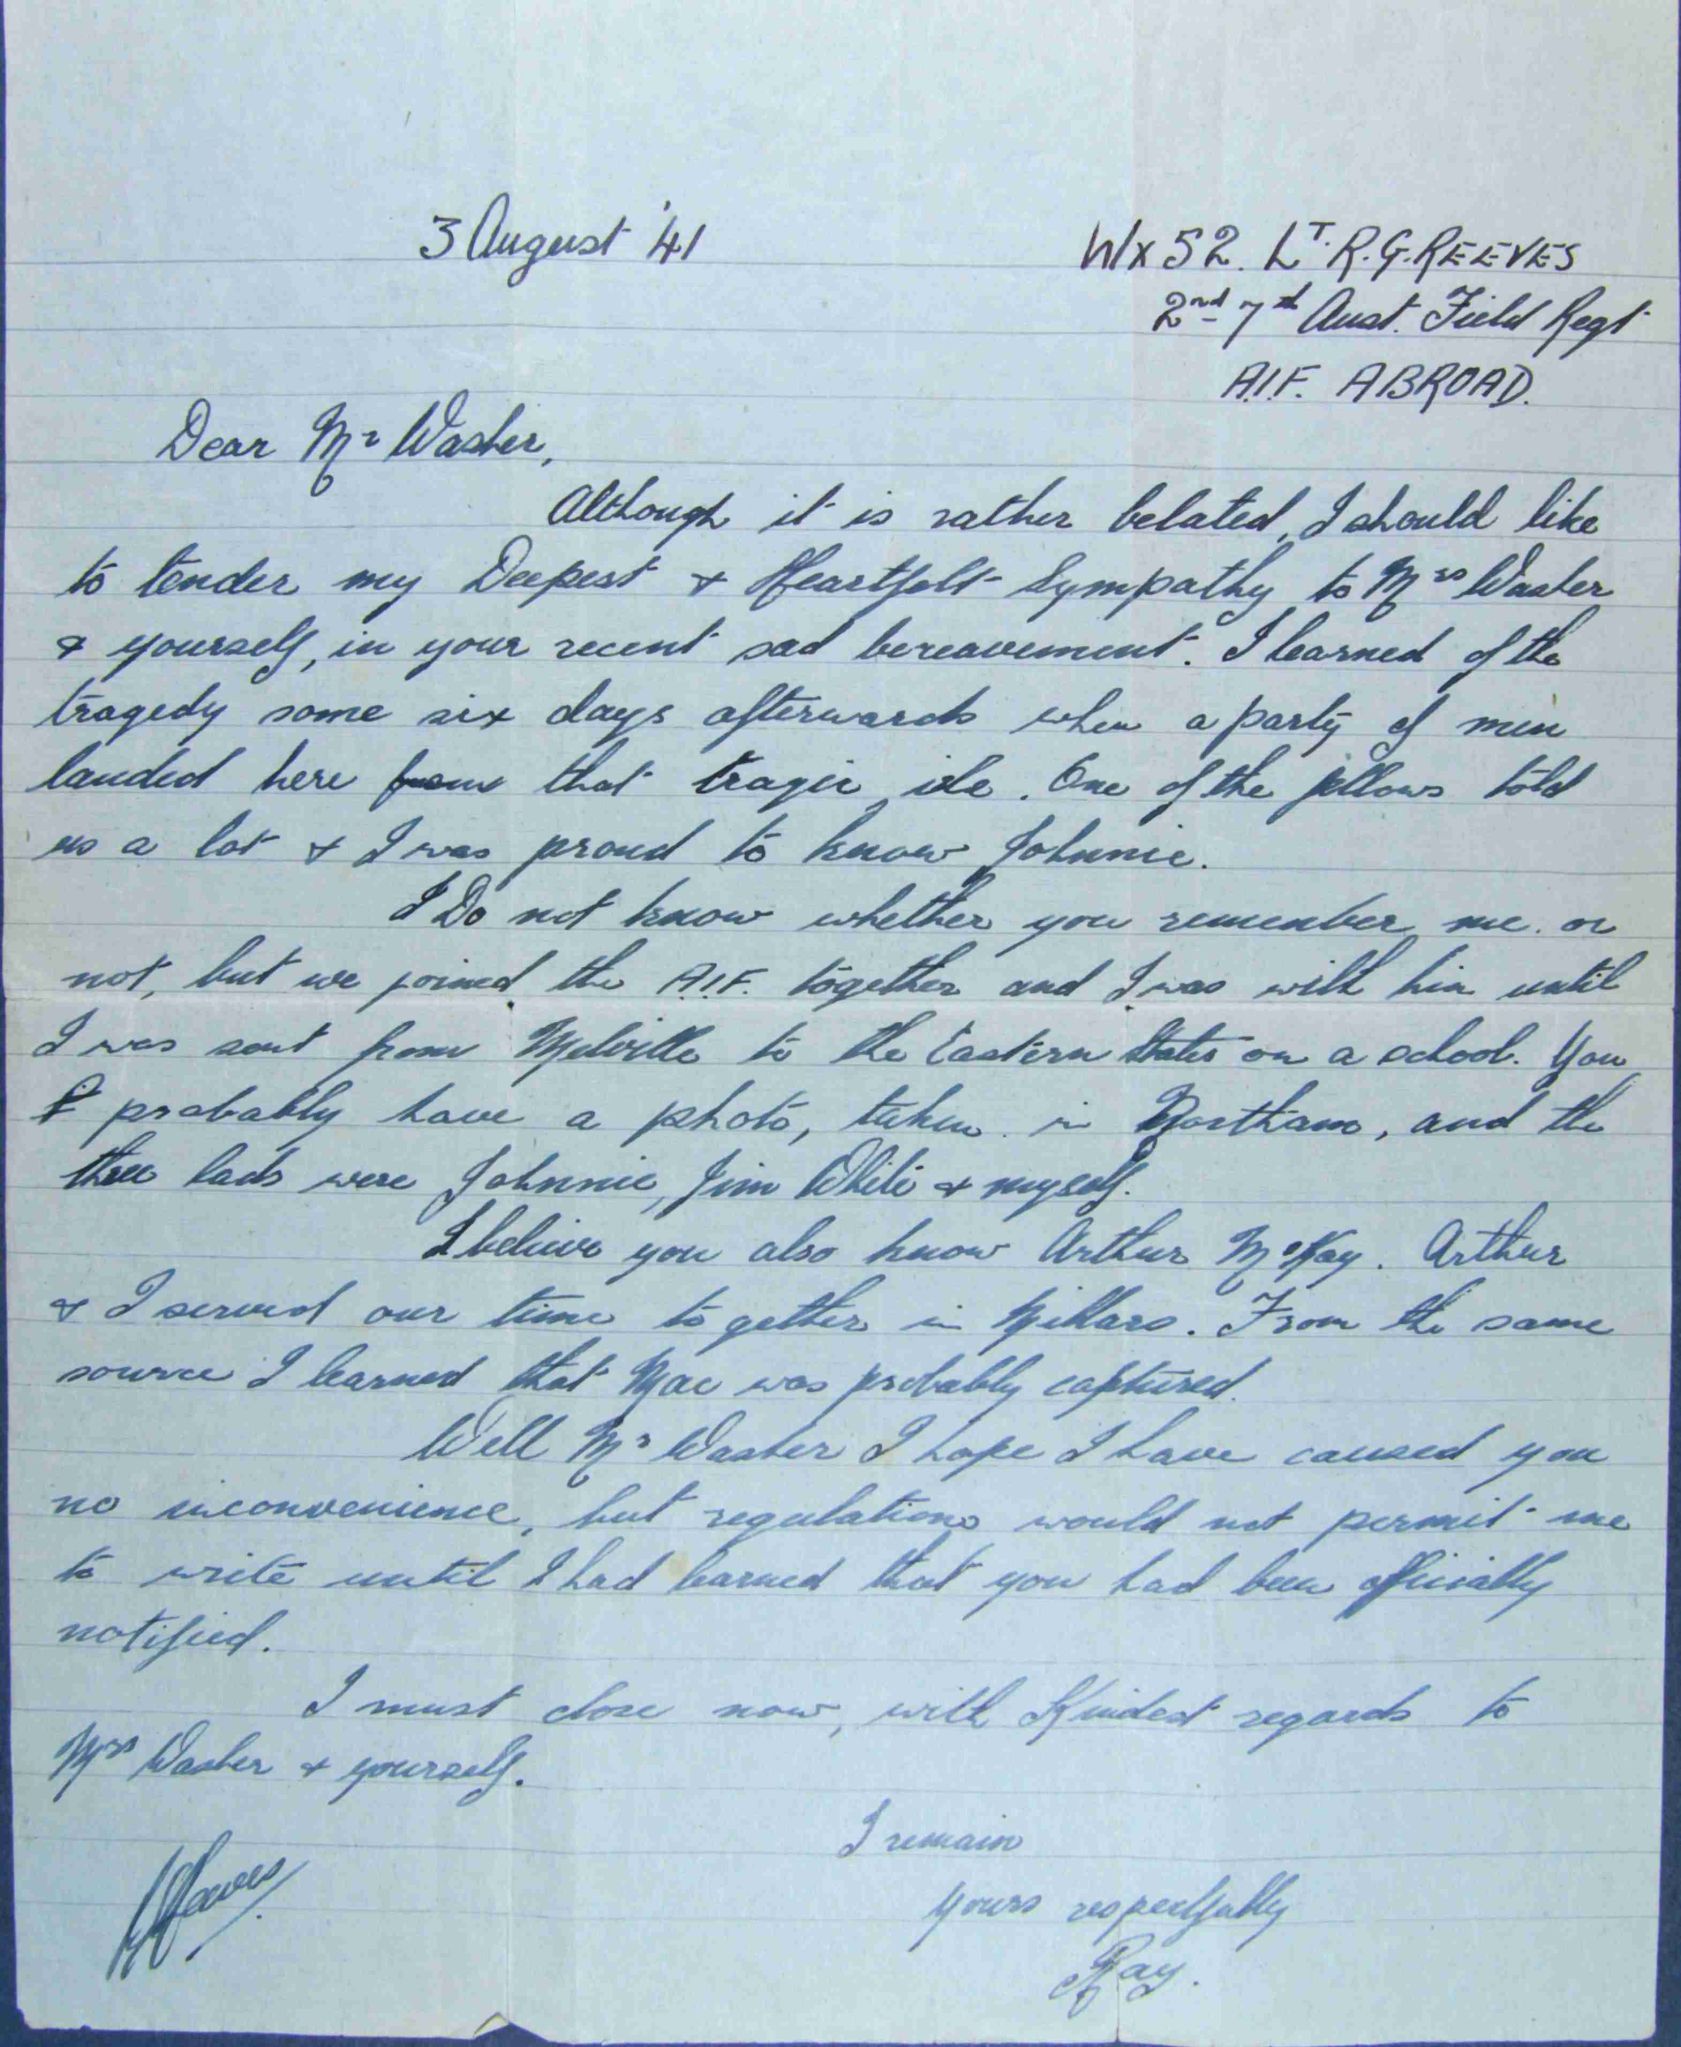 3 August '41
WX 52. LT. R.G. REEVES
2nd 7th Aust. Field Regt
A.I.F. ABROAD.
Dear Mr Washer,
Although it is rather belated, I should like
to tender my Deepest & Heartfelt Sympathy to Mrs Washer
& yourself, in your recent sad bereavement. I learned of the
tragedy some six days afterwards when a party of men
landed here from that tragic isle. One of the fellows told
us a lot & I was proud to know Johnnie.
I Do not know whether you remember me or
not, but we joined the A.I.F. together and I was with him until
I was sent from Melville to the Eastern States on a school. You
probably have a photo, taken in Northam, and the
three lads were Johnnie, Jim White & myself.
I believe you also know Arthur McKay. Arthur
& I served our time together in Millars. From the same
source I learned that Mac was probably captured.
Well Mr Washer I hope I have caused you
no inconvenience, but regulations would not permit me
to write until I had learned that you had been officially
notified.
I must close now, with Kindest regards to
Mrs Washer & yourself.
I remain
Yours respectfully
Ray.